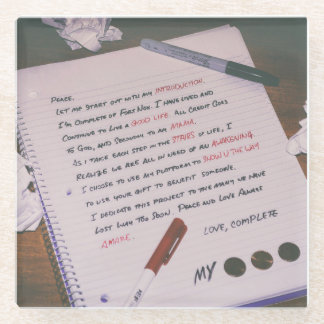 Peace,
Let me start out with my INTRODUCTION.
I'm Complete of Fort Nox. I have lived and
continue to live a GOOD LIFE. All credit goes
to God, and secondly to my MAMA.
As I take each step in the STAIRS of life, I
realize we are all in need of an AWAKENING.
I choose to use my platform to SHOW U THE WAY
to use your gift to benefit someone.
I dedicate this project to the many we have
lost way too soon. Peace and Love Always
Love, Complete
MY